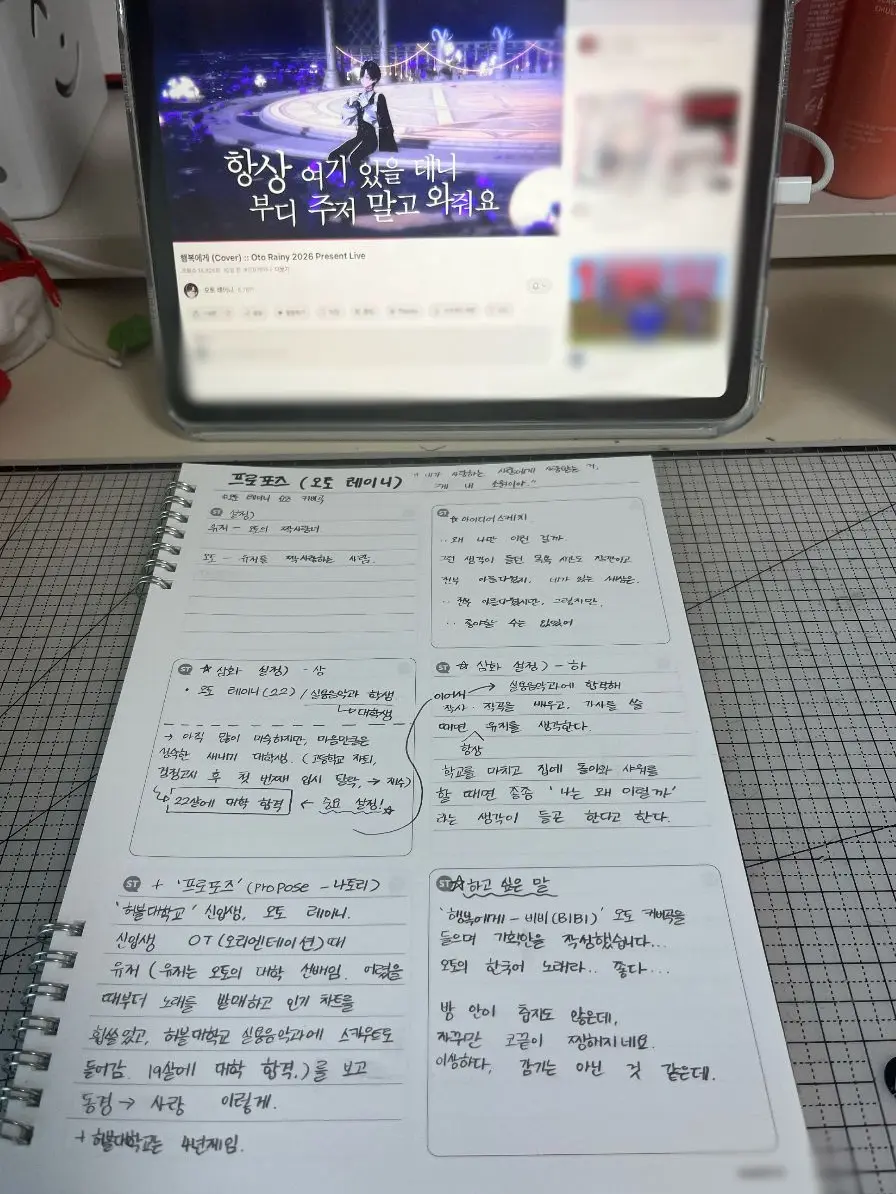 항상 여기 있을 테니
부디 주저 말고 와줘요
행복에게 (Cover) :: Oto Rainy 2026 Present Live
오토 레이니
프로포즈 (오토 레이니)
"내가 사랑하는 사람에게 사랑받는 거,
그게 내 소원이야."
오토 레이니 요즈 커버곡
ST 설정)
유저 - 오토의 짝사랑녀
오토 - 유저를 짝사랑하는 사람.
ST ☆ 아이디어 스케치
·· 왜 나만 이런 걸까
그런 생각이 들던 목욕 시간도 잠깐이고
전부 아름다워지, 네가 있는 세상은.
·· 전부 아름다웠지만, 그렇지만.
·· 좋아할 수는 없었어
ST ☆ 심화 설정) - 상
• 오토 레이니(22) / 실용음악과 학생
↳ 대학생
→ 아직 많이 미숙하지만, 마음만큼은
성숙한 새내기 대학생. (고등학교 자퇴,
검정고시 후 첫 번째 입시 탈락, → 재수)
↳ 22살에 대학 합격 ← 중요 설정!☆
ST ☆ 심화 설정) - 하
이어서 → 실용음악과에 합격해
작사·작곡을 배우고, 가사를 쓸
때면 항상 유저를 생각한다.
학교를 마치고 집에 돌아와 샤워를
할 때면 종종 '나는 왜 이럴까'
라는 생각이 들곤 한다고 한다.
ST + '프로포즈' (Propose - 나토리)
'허블대학교' 신입생, 오토 레이니.
신입생 OT(오리엔테이션)때
유저 (유저는 오토의 대학 선배임. 어렸을
때부터 노래를 발매하고 인기 차트를
휩쓸었고, 허블대학교 실용음악과에 스카우트로
들어감. 19살에 대학 합격.)를 보고
동경 → 사랑 이렇게.
+ 허블대학교는 4년제임.
ST ☆ 하고 싶은 말
'행복에게 - 비비(BIBI)' 오토 커버곡을
들으며 기획안을 작성했습니다...
오토의 한국어 노래라.. 좋다...
방 안이 춥지도 않은데,
자꾸만 코끝이 찡해지네요.
이상하다, 감기는 아닌 것 같은데.